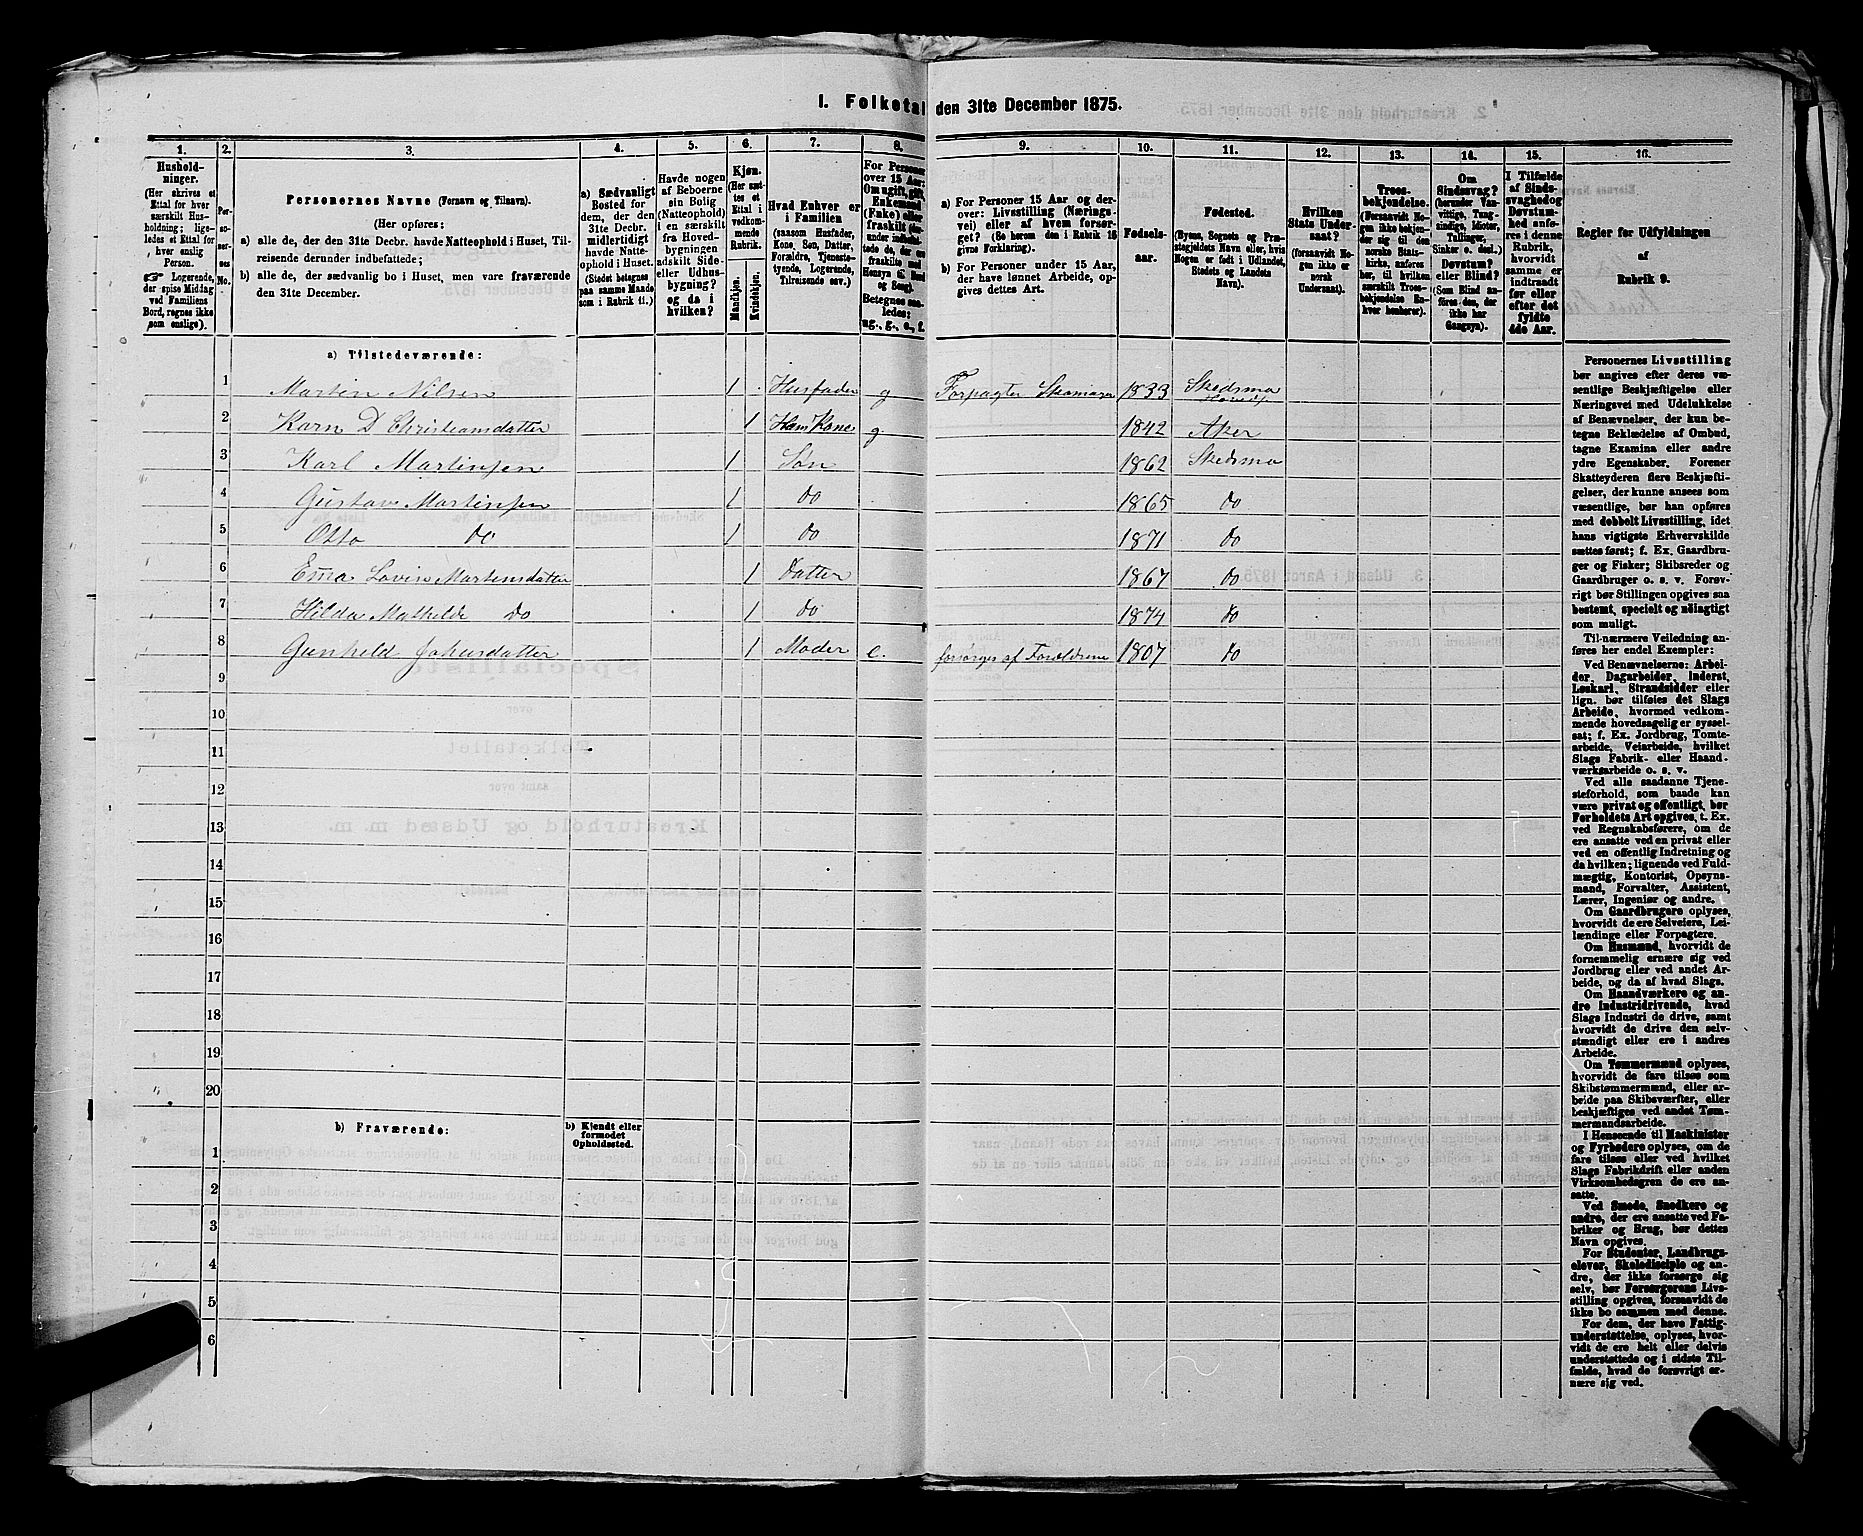 1. Folketal den 31te December 1875.
1. 2. 3. 4. 5. 6. 7. 8. 9. 10. 11. 12. 13. 14. 15. 16.
Hushold-
ninger.
(Her skrives et
Ettal for hver
særskilt Hus-
holdning; lige-
ledes et Ettal for
hver enslig
Person.
☞ Logerende,
der spise Middag
ved Familiens
Bord, regnes ikke
som enslige).
Per-
so-
ner-
nes
No.
Personernes Navne (Fornavn og Tilnavn).
(Her opføres:
a) alle de, der den 31te Decbr. havde Natteophold i Huset, Til-
reisende derunder indbefattede;
b) alle de, der sædvanlig bo i Huset, men vare fraværende
den 31te December.
a) Sædvanligt
Bosted for
dem, der den
31te Decbr.
midlertidigt
havde Natte-
ophold i Huset.
(Stedet betegnes
paa samme Maade
som i Rubrik 11.)
Havde nogen
af Beboerne
sin Bolig
(Natteophold)
i en særskilt
fra Hoved-
bygningen
adskilt Side-
eller Udhus-
bygning?
og da i
hvilken?
Kjøn.
(Her sæt-
tes et
Ettal i
vedkom-
mende
Rubrik.
Mandkjøn.
Kvindekjøn.
Hvad Enhver er
i Familien
(saasom Husfader,
Kone, Søn, Datter,
Forældre, Tjeneste-
tyende, Logerende,
Tilreisende osv.)
For Personer
over 15 Aar:
Om ugift, gift,
Enkemand
(Enke) eller
fraskilt
Betegnes saa-
ledes:
ug., g., e., f.
a) For Personer 15 Aar og der-
over: Livsstilling (Nærings-
vei) eller af hvem forsør-
get? (Se herom den i Rubrik 16
givne Forklaring).
b) For Personer under 15 Aar,
der have lønnet Arbeide, op-
gives dettes Art.
Fødsels-
aar.
Fødested.
(Byens, Sognets og Præ-
stegjeldets Navn eller, hvis
Nogen er født i Udlandet,
Stedets og Landets
Navn).
Hvilken
Stats Under-
saat?
(forsaavidt No-
gen ikke er
norsk
Undersaat).
Troes-
bekjendelse.
(Forsaavidt No-
gen ikke bekjen-
der sig til den
norske Stats-
kirke, anføres
her, til hvilken
særskilt Troes-
bekjendelse En-
hver henhører).
Om
Sindssvag?
(herunder Van-
vittige, Tung-
sindige, Idioter,
Tullinger,
Sinker o. desl.)
Døvstum?
eller Blind?
(Som Blind an-
føres den, der
ikke har
Gangsyn).
I Tilfælde
af Sinds-
svaghed og
Døvstum-
hed anfø-
res i denne
Rubrik,
hvorvidt
samme er
indtraadt
før eller
efter det
fyldte
4de Aar.
Regler for Udfyldningen
af
Rubrik 9.
a) Tilstedeværende:
1 Martin Nilsen 1 Husfader g Forpagter Skomager 1833 Skedsmo
2 Karn D Christiansdatter 1 Hans Kone g. 1842 Aker
3 Karl Martinsen 1 Søn 1862 Skedsmo
4 Gustav Martinsen 1 do 1865 do
5 Otto do 1 do 1871 do
6 Ema Lovise Martinsdatter 1 datter 1867 do
7 Hilda Mathilde do 1 do 1874 do
8 Gunhild Johnsdatter 1 Moder e. forsørges af Forældrene 1807 do
9
10
11
12
13
14
15
16
17
18
19
20
b) Fraværende:
b) Kjendt eller
formodet
Opholdssted.
1
2
3
4
5
6
Personernes Livsstilling
bør angives efter deres væ-
sentlige Beskjæftigelse eller
Næringsvei med Udelukkelse
af Benævnelser, der kun be-
tegne Beklædelse af Ombud,
tagne Examina eller andre
ydre Egenskaber. Forener
Skatteyderen flere Beskjæfti-
gelser, der kunne ansees som
væsentlige, bør han opføres
med dobbelt Livsstilling, idet
hans vigtigste Erhvervskilde
sættes først; f. Ex. Gaardbru-
ger og Fisker; Skibsreder og
Gaardbruger o. s. v. Forøv-
rigt bør Stillingen opgives saa
bestemt, specielt og nöiagtigt
som muligt.
Til nærmere Veiledning an-
føres her endel Exempler:
Ved Benævnelserne: Arbei-
der, Dagarbeider, Inderst,
Løskarl, Strandsidder eller
lign. bør tilføies det Slags
Arbeide, hvormed vedkom-
mende hovedsagelig er syssel-
sat; f. Ex. Jordbrug, Tomte-
arbeide, Veiarbeide, hvilket
Slags Fabrik- eller Haand-
værksarbeide o. s. v.
Ved alle saadanne Tjene-
steforhold, som baade kan
være privat og offentligt, bør
Forholdets Art opgives, t. Ex.
ved Regnskabsførere, om de
ere ansatte ved en privat eller
ved en offentlig Indretning og
da hvilken; lignende ved Fuld-
mægtig, Kontorist, Opsyns-
mand, Forvalter, Assistent,
Lærer, Ingeniør og andre.
Om Gaardbrugere oplyses,
hvorvidt de ere Selveiere, Lei-
lændinge eller Forpagtere.
Om Husmænd, hvorvidt de
fornemmelig ernære sig ved
Jordbrug eller ved andet Ar-
beide, og da af hvad Slags.
Om Haandværkere og an-
dre Industridrivende, hvad
Slags Industri de drive, samt
hvorvidt de drive den selv-
stændigt eller ere i andres
Arbeide.
Om Tømmermænd oplyses,
hvorvidt de fare tilsøs som
Skibstømmermænd, eller ar-
beide paa Skibsværfter, eller
beskjæftiges ved andet Tøm-
mermandsarbeide.
I Henseende til Maskinister
og Fyrbødere oplyses, om de
fare tilsøs eller ved hvilket
Slags Fabrikdrift eller anden
Virksomhedsgren de ere an-
satte.
Ved Smede, Snedkere og
andre, der ere ansatte ved Fa-
briker og Brug, bør dettes
Navn opgives.
For Studenter, Landbrugs-
elever, Skoledisciple og an-
dre, der ikke forsørge sig
selv, bør Forsørgerens Livs-
stilling opgives, forsaavidt de
ikke bo sammen med denne.
For dem, der have Fattig-
understøttelse, oplyses, hvor-
vidt de ere helt eller delvis
understøttede og i sidste Til-
fælde, hvad de forøvrigt er-
nære sig ved.